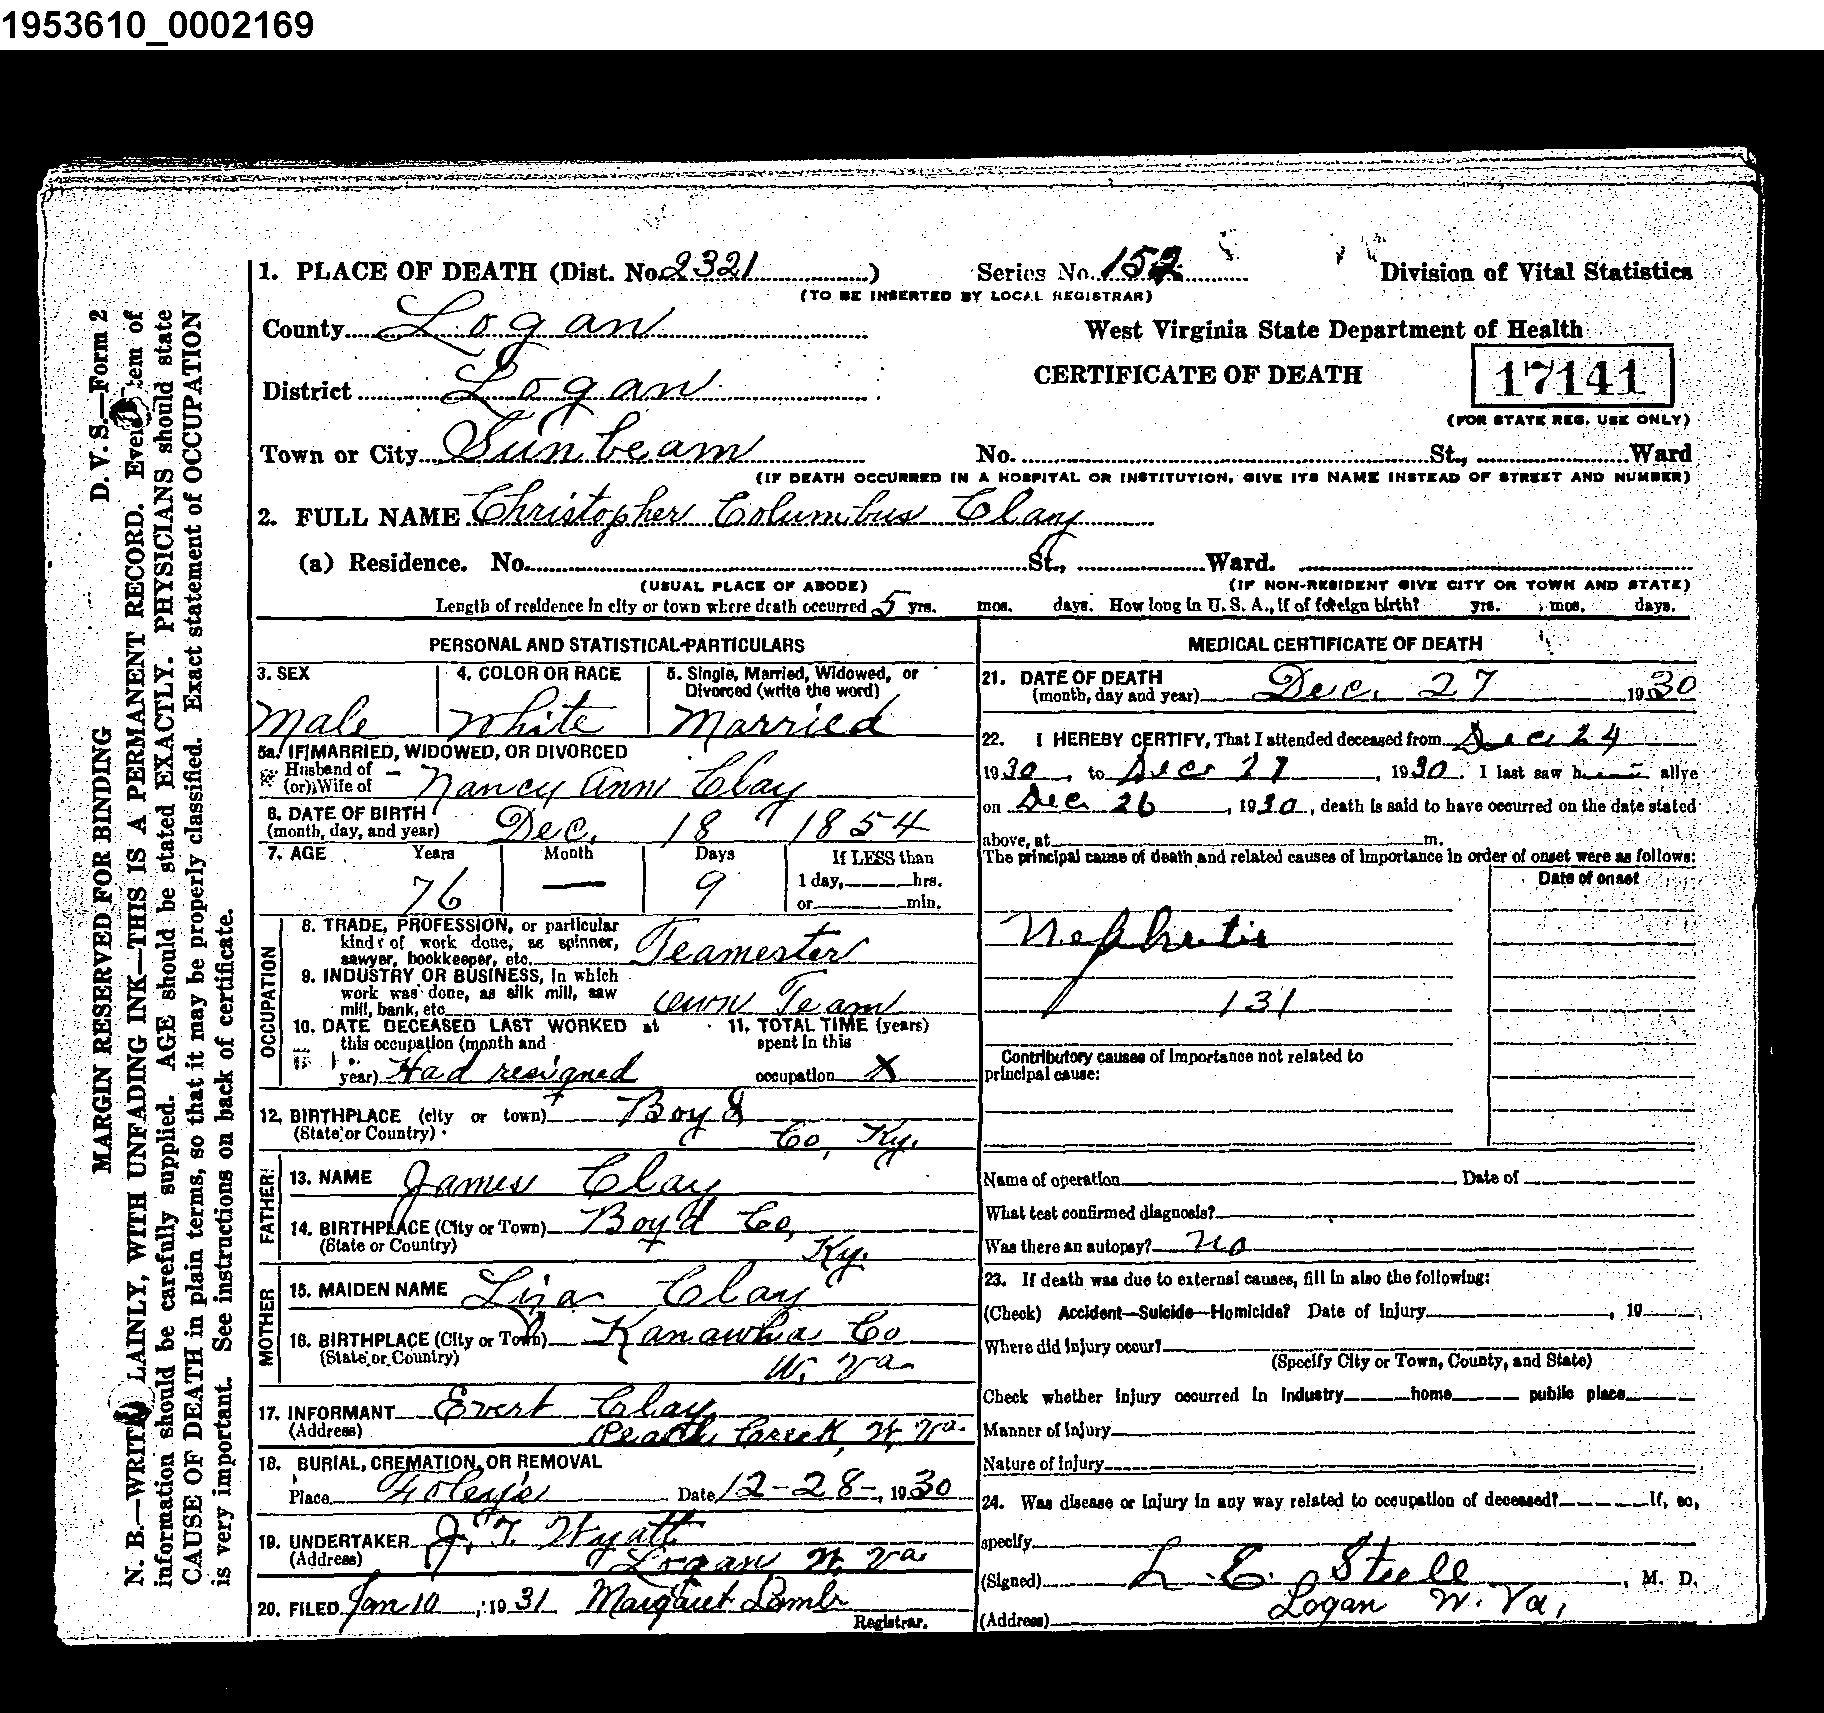 1953610_0002169
D. V. S.—Form 2
MARGIN RESERVED FOR BINDING
N. B.—WRITE PLAINLY, WITH UNFADING INK—THIS IS A PERMANENT RECORD. Every item of
information should be carefully supplied. AGE should be stated EXACTLY. PHYSICIANS should state
CAUSE OF DEATH in plain terms, so that it may be properly classified. Exact statement of OCCUPATION
is very important. See instructions on back of certificate.
1. PLACE OF DEATH (Dist. No. 2321) Series No. 152 Division of Vital Statistics
(TO BE INSERTED BY LOCAL REGISTRAR)
County Logan West Virginia State Department of Health
District Logan CERTIFICATE OF DEATH 17141
(FOR STATE REG. USE ONLY)
Town or City Sunbeam No. St., Ward
(IF DEATH OCCURRED IN A HOSPITAL OR INSTITUTION, GIVE ITS NAME INSTEAD OF STREET AND NUMBER)
2. FULL NAME Christopher Columbus Clay
(a) Residence. No. St., Ward.
(USUAL PLACE OF ABODE) (IF NON-RESIDENT GIVE CITY OR TOWN AND STATE)
Length of residence in city or town where death occurred 5 yrs. mos. days. How long in U. S. A., if of foreign birth? yrs. mos. days.
PERSONAL AND STATISTICAL PARTICULARS
3. SEX
Male
4. COLOR OR RACE
White
5. Single, Married, Widowed, or
Divorced (write the word)
Married
5a. IF MARRIED, WIDOWED, OR DIVORCED
Husband of
(or) Wife of Nancy Ann Clay
6. DATE OF BIRTH
(month, day, and year) Dec. 18 1854
7. AGE Years Month Days If LESS than
76 — 9 1 day, hrs.
or min.
OCCUPATION
8. TRADE, PROFESSION, or particular
kind of work done, as spinner,
sawyer, bookkeeper, etc. Teamester
9. INDUSTRY OR BUSINESS, in which
work was done, as silk mill, saw
mill, bank, etc. own Team
10. DATE DECEASED LAST WORKED at
this occupation (month and
year) Had resigned
11. TOTAL TIME (years)
spent in this
occupation X
12. BIRTHPLACE (city or town) Boyd
(State or Country) Co, Ky.
FATHER
13. NAME James Clay
14. BIRTHPLACE (City or Town) Boyd Co,
(State or Country) Ky.
MOTHER
15. MAIDEN NAME Liza Clay
16. BIRTHPLACE (City or Town) Kanawha Co
(State or Country) W. Va
17. INFORMANT Evert Clay
(Address) Peach Creek, W. Va.
18. BURIAL, CREMATION, OR REMOVAL
Place Foley's Date 12-28-, 1930
19. UNDERTAKER J. T. Wyatt
(Address) Logan W. Va.
20. FILED Jan 10, 1931 Margaret Lamb
Registrar.
MEDICAL CERTIFICATE OF DEATH
21. DATE OF DEATH
(month, day and year) Dec. 27 1930
22. I HEREBY CERTIFY, That I attended deceased from Dec 24
1930, to Dec 27, 1930. I last saw h alive
on Dec 26, 1930, death is said to have occurred on the date stated
above, at m.
The principal cause of death and related causes of importance in order of onset were as follows:
Date of onset
Nephritis
131
Contributory causes of importance not related to
principal cause:
Name of operation Date of
What test confirmed diagnosis?
Was there an autopsy? no
23. If death was due to external causes, fill in also the following:
(Check) Accident—Suicide—Homicide? Date of injury, 19
Where did injury occur?
(Specify City or Town, County, and State)
Check whether injury occurred in industry home public place
Manner of injury
Nature of injury
24. Was disease or injury in any way related to occupation of deceased? If, so,
specify
(Signed) L. E. Steele, M. D.
(Address) Logan W. Va,